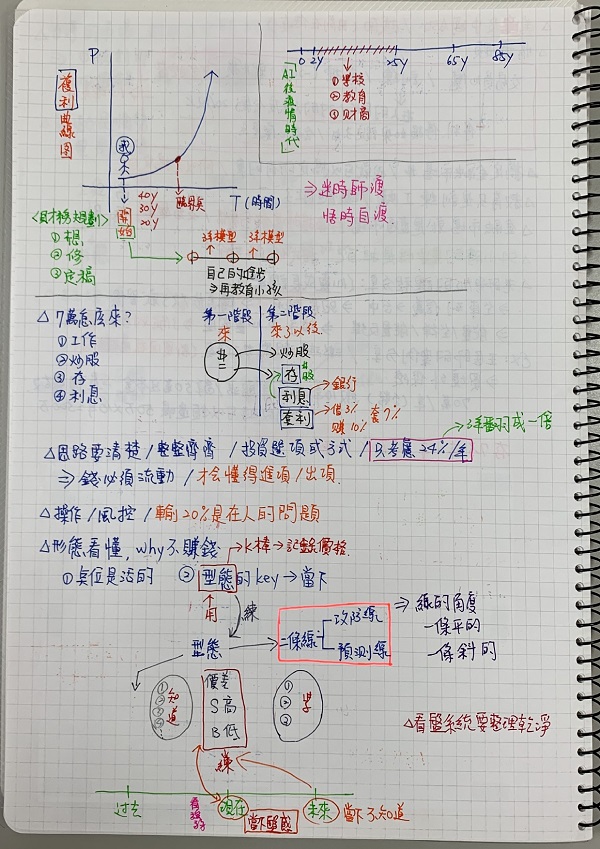 P
複利曲線圖
T(時間)
開始
40y
30y
20y
臨界點
0 2y 25y 65y 85y
AI後疫情時代
①學校
②教育
③財商
⇒迷時師渡
悟時自渡
<財務規劃>
①想
②修
③定稿
3年模型 3年模型
自己的進步
⇒再教育小孩
△7萬怎麼來?
①工作
②炒股
③存
④利息
第一階段
來
$
第二階段
來了以後
炒股
存 股
利息 銀行
套利
借3% 套7%
賺10%
△思路要清楚/整整齊齊/投資選項或方式/只考慮24%/年
3年翻羽或一倍
⇒錢必須流動/才会懂得進項/出項
△操作/風控/輸20%是在人的問題
△形態看懂,why不賺錢
K棒→記錄價格
①桌位是活的
②型態的key→當下
用
練
型態
一條線
攻防線
預測線
⇒線的角度
一條平的
一條斜的
①②③④知道
價差
S高
B低
練
①②③學
△看盤系統要整理乾淨
过去
現在
當下盤感
未來
當下不知道